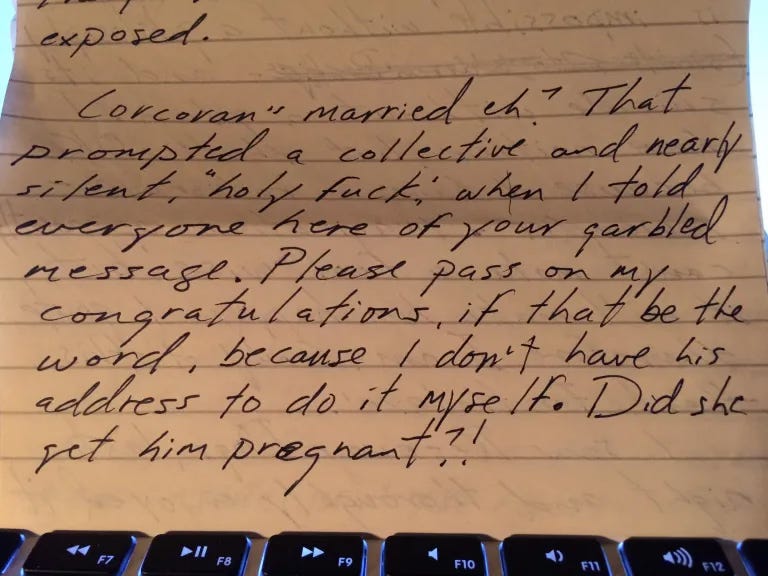 exposed.
Corcoran's married eh? That
prompted a collective and nearly
silent, "holy fuck," when I told
everyone here of your garbled
message. Please pass on my
congratulations, if that be the
word, because I don't have his
address to do it myself. Did she
get him pregnant?!
F7 F8 F9 F10 F11 F12